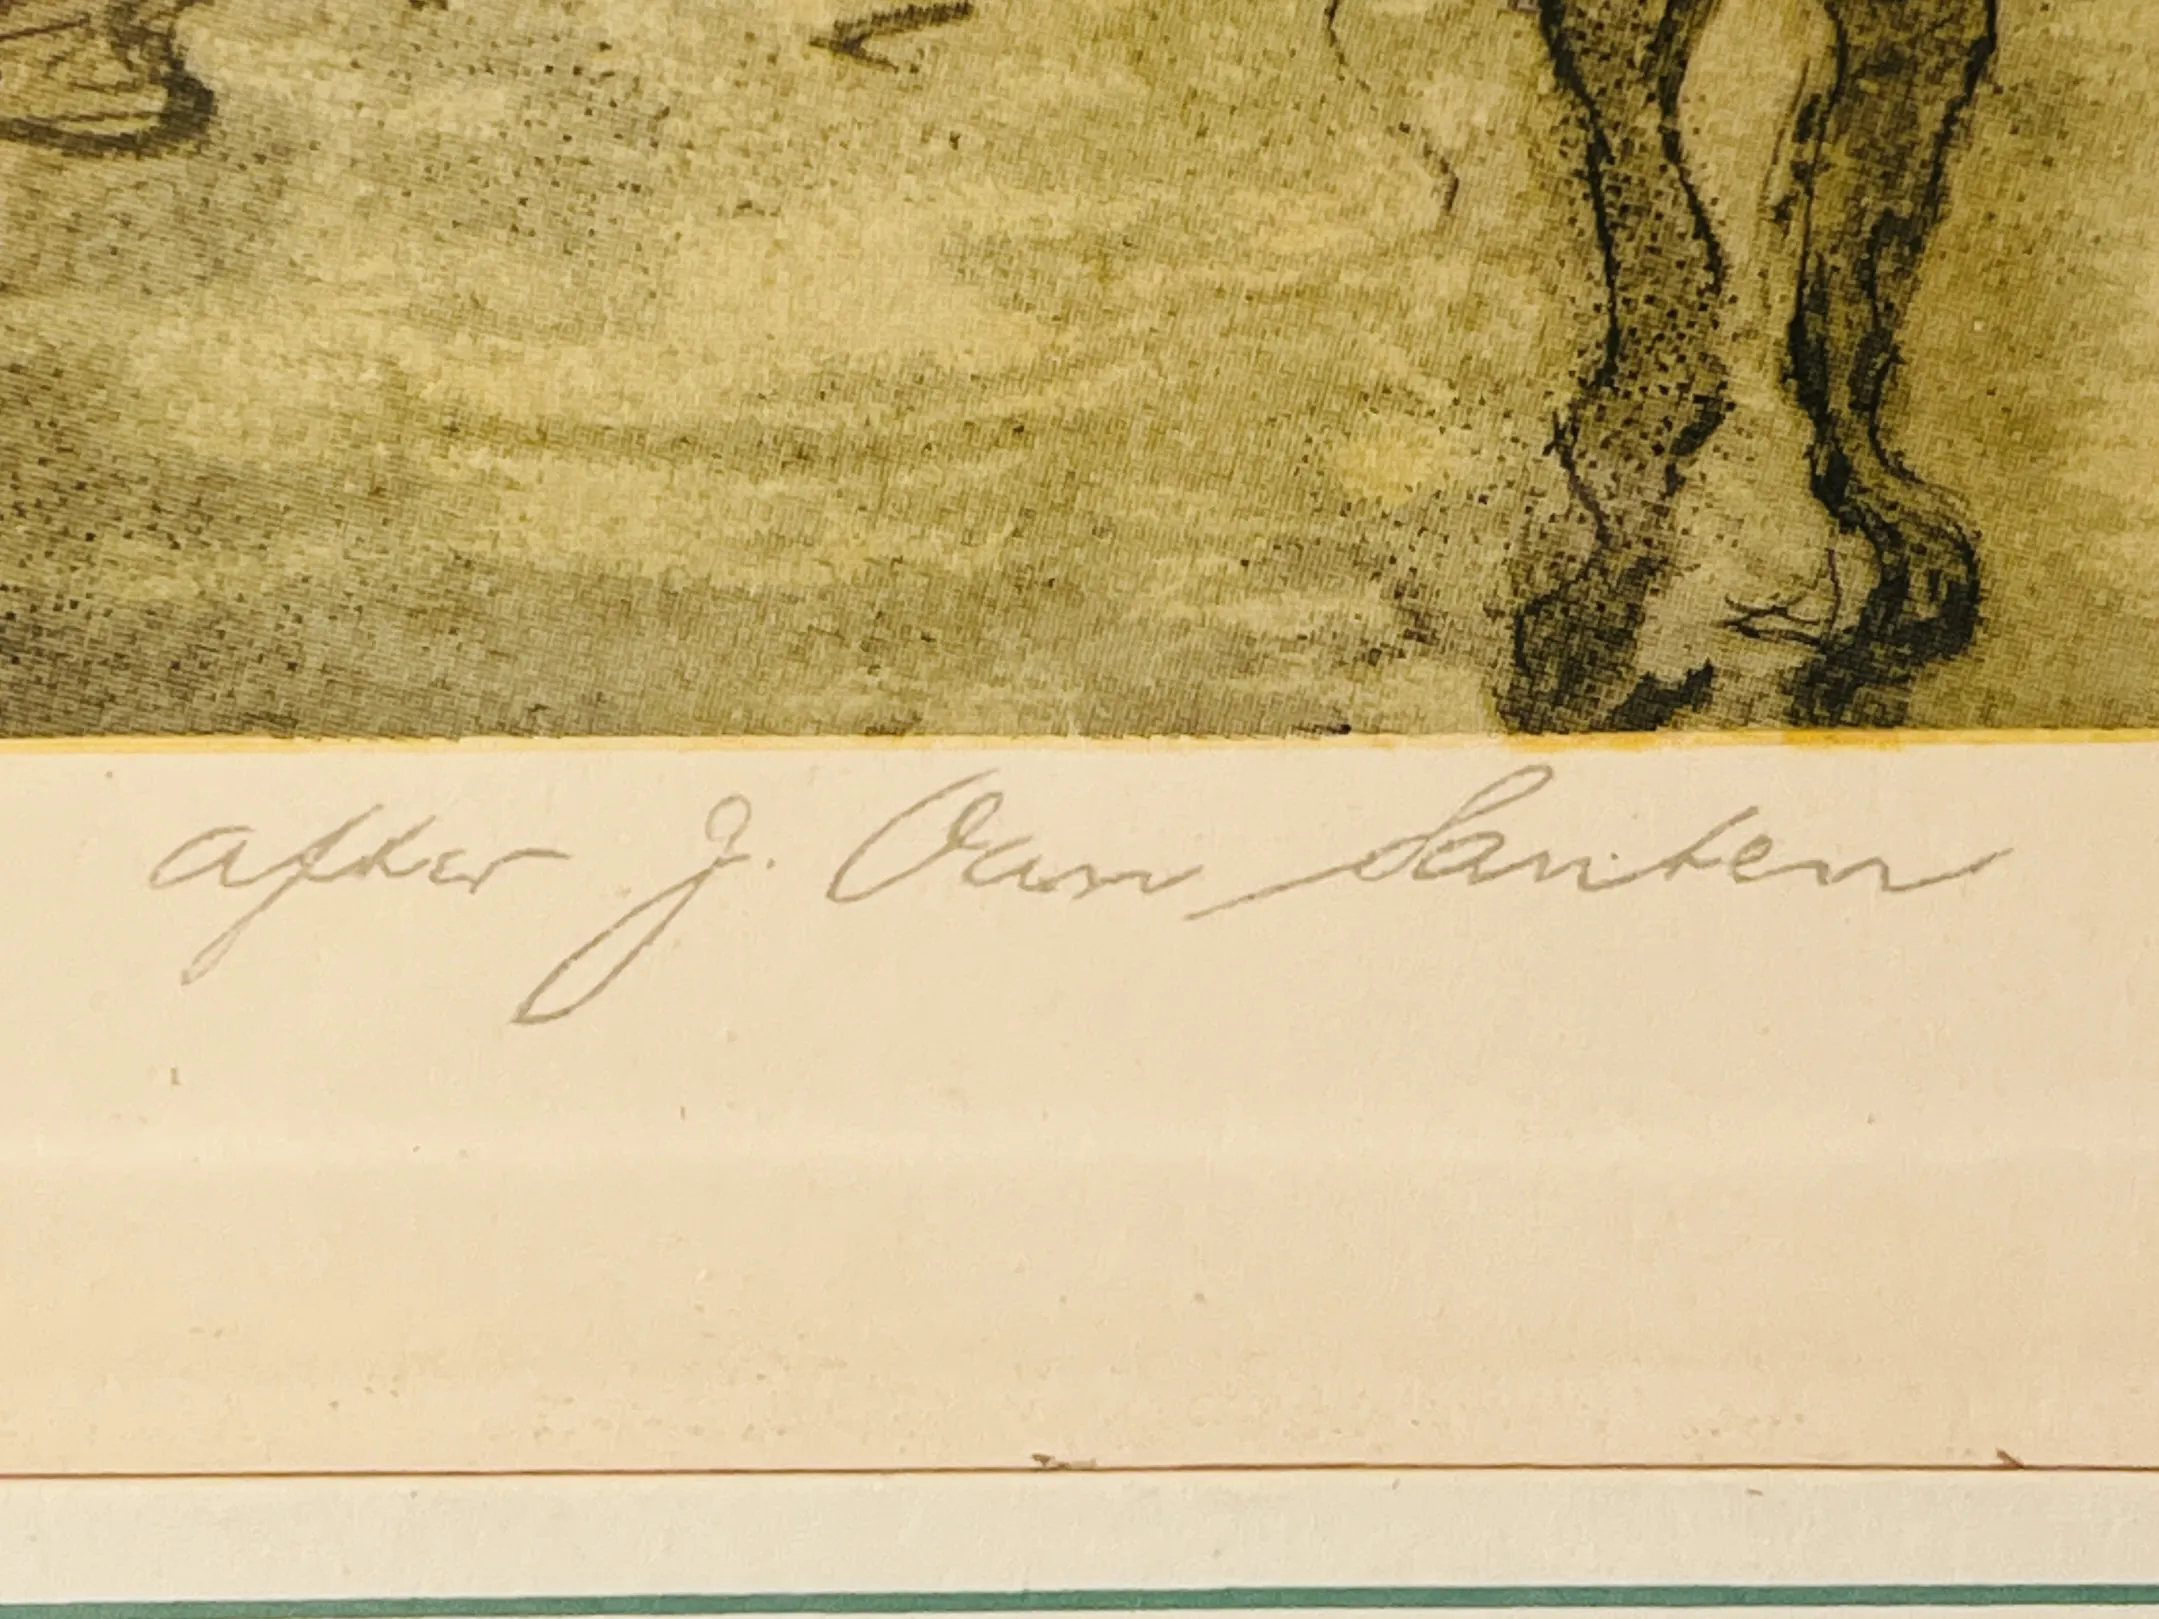 after J. Van Santen